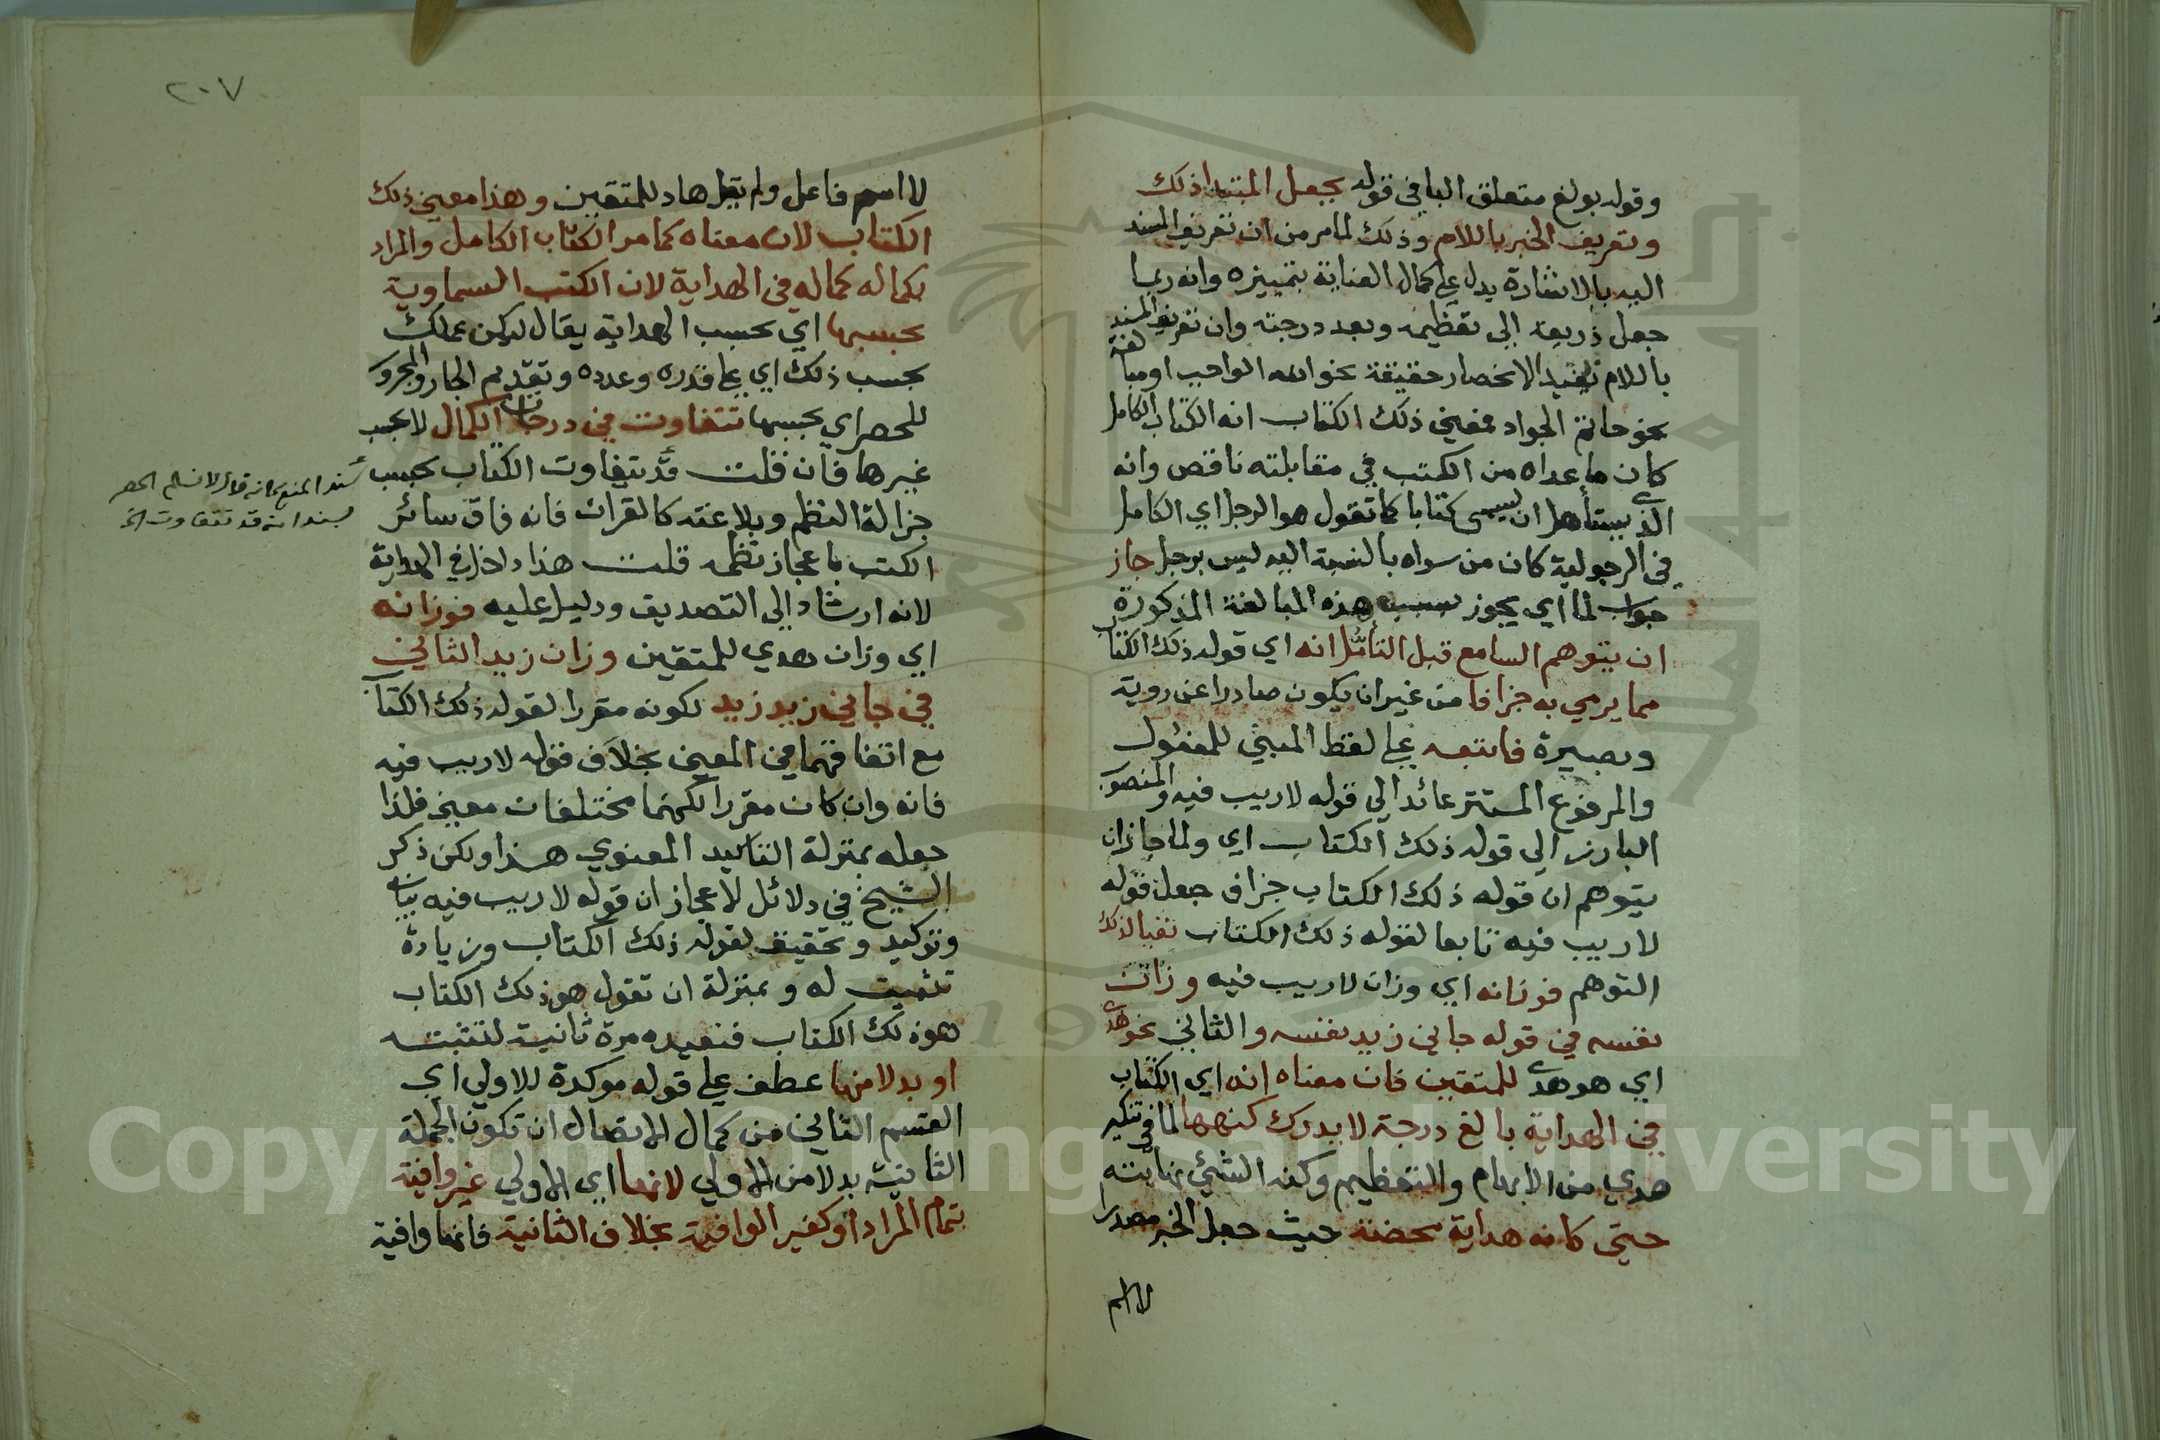 وقوله بولغ متعلق البا في قوله بجعل المبتدا ذلك
وتعريف الخبر باللام وذلك لما مر من ان تعريف المسند
اليه بالاشارة يدل علي كمال العناية بتمييزه وانه ربما
جعل ذريعة الي تعظيمه وبعد درجته وان تعريف المسند
باللام يفيد الانحصار حقيقة نحو الله الواجب او مبالغة
نحو حاتم الجواد فمعني ذلك الكتاب انه الكتاب الكامل
كان ما عداه من الكتب في مقابلته ناقص وانه
الذي يستأهل ان يسمي كتابا كما تقول هو الرجل اي الكامل
في الرجولية كان من سواه بالنسبة اليه ليس برجل جاز
جواب لما اي يجوز بسبب هذه المبالغة المذكورة
ان يتوهم السامع قبل التأمل انه اي قوله ذلك الكتاب
مما يرمي به جزافا من غير ان يكون صادرا عن روية
وبصيرة فاتبعه علي لفظ المبني للمفعول
والمرفوع المستتر عائد الي قوله لا ريب فيه والمنصوب
البارز الي قوله ذلك الكتاب اي ولما جاز ان
يتوهم ان قوله ذلك الكتاب جزاف جعل قوله
لا ريب فيه تابعا لقوله ذلك الكتاب نفيا لذلك
التوهم فوزانه اي وزان لا ريب فيه وزان
نفسه في قوله جاني زيد نفسه والثاني نحو هدي
اي هو هدي للمتقين فان معناه انه اي الكتاب
في الهداية بالغ درجة لا يدرك كنهها لما في تنكير
هدي من الابهام والتفخيم وكنه الشئ نهايته
حتي كانه هداية محضة حيث جعل الخبر مصدرا
لا اسم
٢٠٧
لا اسم فاعل ولم يقل هاد للمتقين وهذا معني ذلك
الكتاب لان معناه كما مر الكتاب الكامل والمراد
بكماله كماله في الهداية لان الكتب السماوية
بحسبها اي بحسب الهداية يقال ليكن عملك
بحسب ذلك اي علي قدره وعدده وتقديم الجار والمجرور
للحصر اي بحسبها تتفاوت في درجات الكمال لا بحسب
غيرها فان قلت قد يتفاوت الكتاب بحسب
جزالة النظم وبلاغته كالقران فانه فاق سائر
الكتب باعجاز نظمه قلت هذا داخل في الهداية
لانه ارشاد الي التصديق ودليل عليه فوزانه
اي وزان هدي للمتقين وزان زيد الثاني
في جاني زيد زيد لكونه مقررا لقوله ذلك الكتاب
مع اتفاقهما في المعني بخلاف قوله لا ريب فيه
فانه وان كان مقررا لكنهما مختلفان معني فلذا
جعله بمنزلة التاكيد المعنوي هذا ولكن ذكر
الشيخ في دلائل الاعجاز ان قوله لا ريب فيه بيان
وتوكيد وتحقيق لقوله ذلك الكتاب وزيادة
تثبيت له وبمنزلة ان تقول هو ذلك الكتاب
هو ذلك الكتاب فتعيده مرة ثانية لتثبته
او بدلا منها عطف علي قوله موكدة للاولي اي
القسم الثاني من كمال الاتصال ان تكون الجملة
الثانية بدلا من الاولي لانها اي الاولي غير وافية
بتمام المراد او كغير الوافية بخلاف الثانية فانها وافية
سند المنع كانه قال لا نسلم الحصر
بسند انه قد تتفاوت الخ
Copyright © King Saud University